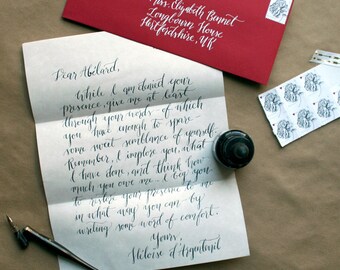 Mrs. Elizabeth Bennet
Longbourn House
Hertfordshire, UK
Dear Abelard,
While I am denied your
presence, give me at least
through your words of which
you have enough to spare
some sweet semblance of yourself.
Remember, I implore you, what
I have done, and think how
much you owe me. I beg you
to restore your presence to me
in what way you can by
writing some word of comfort.
Yours,
Heloise d'Argenteuil